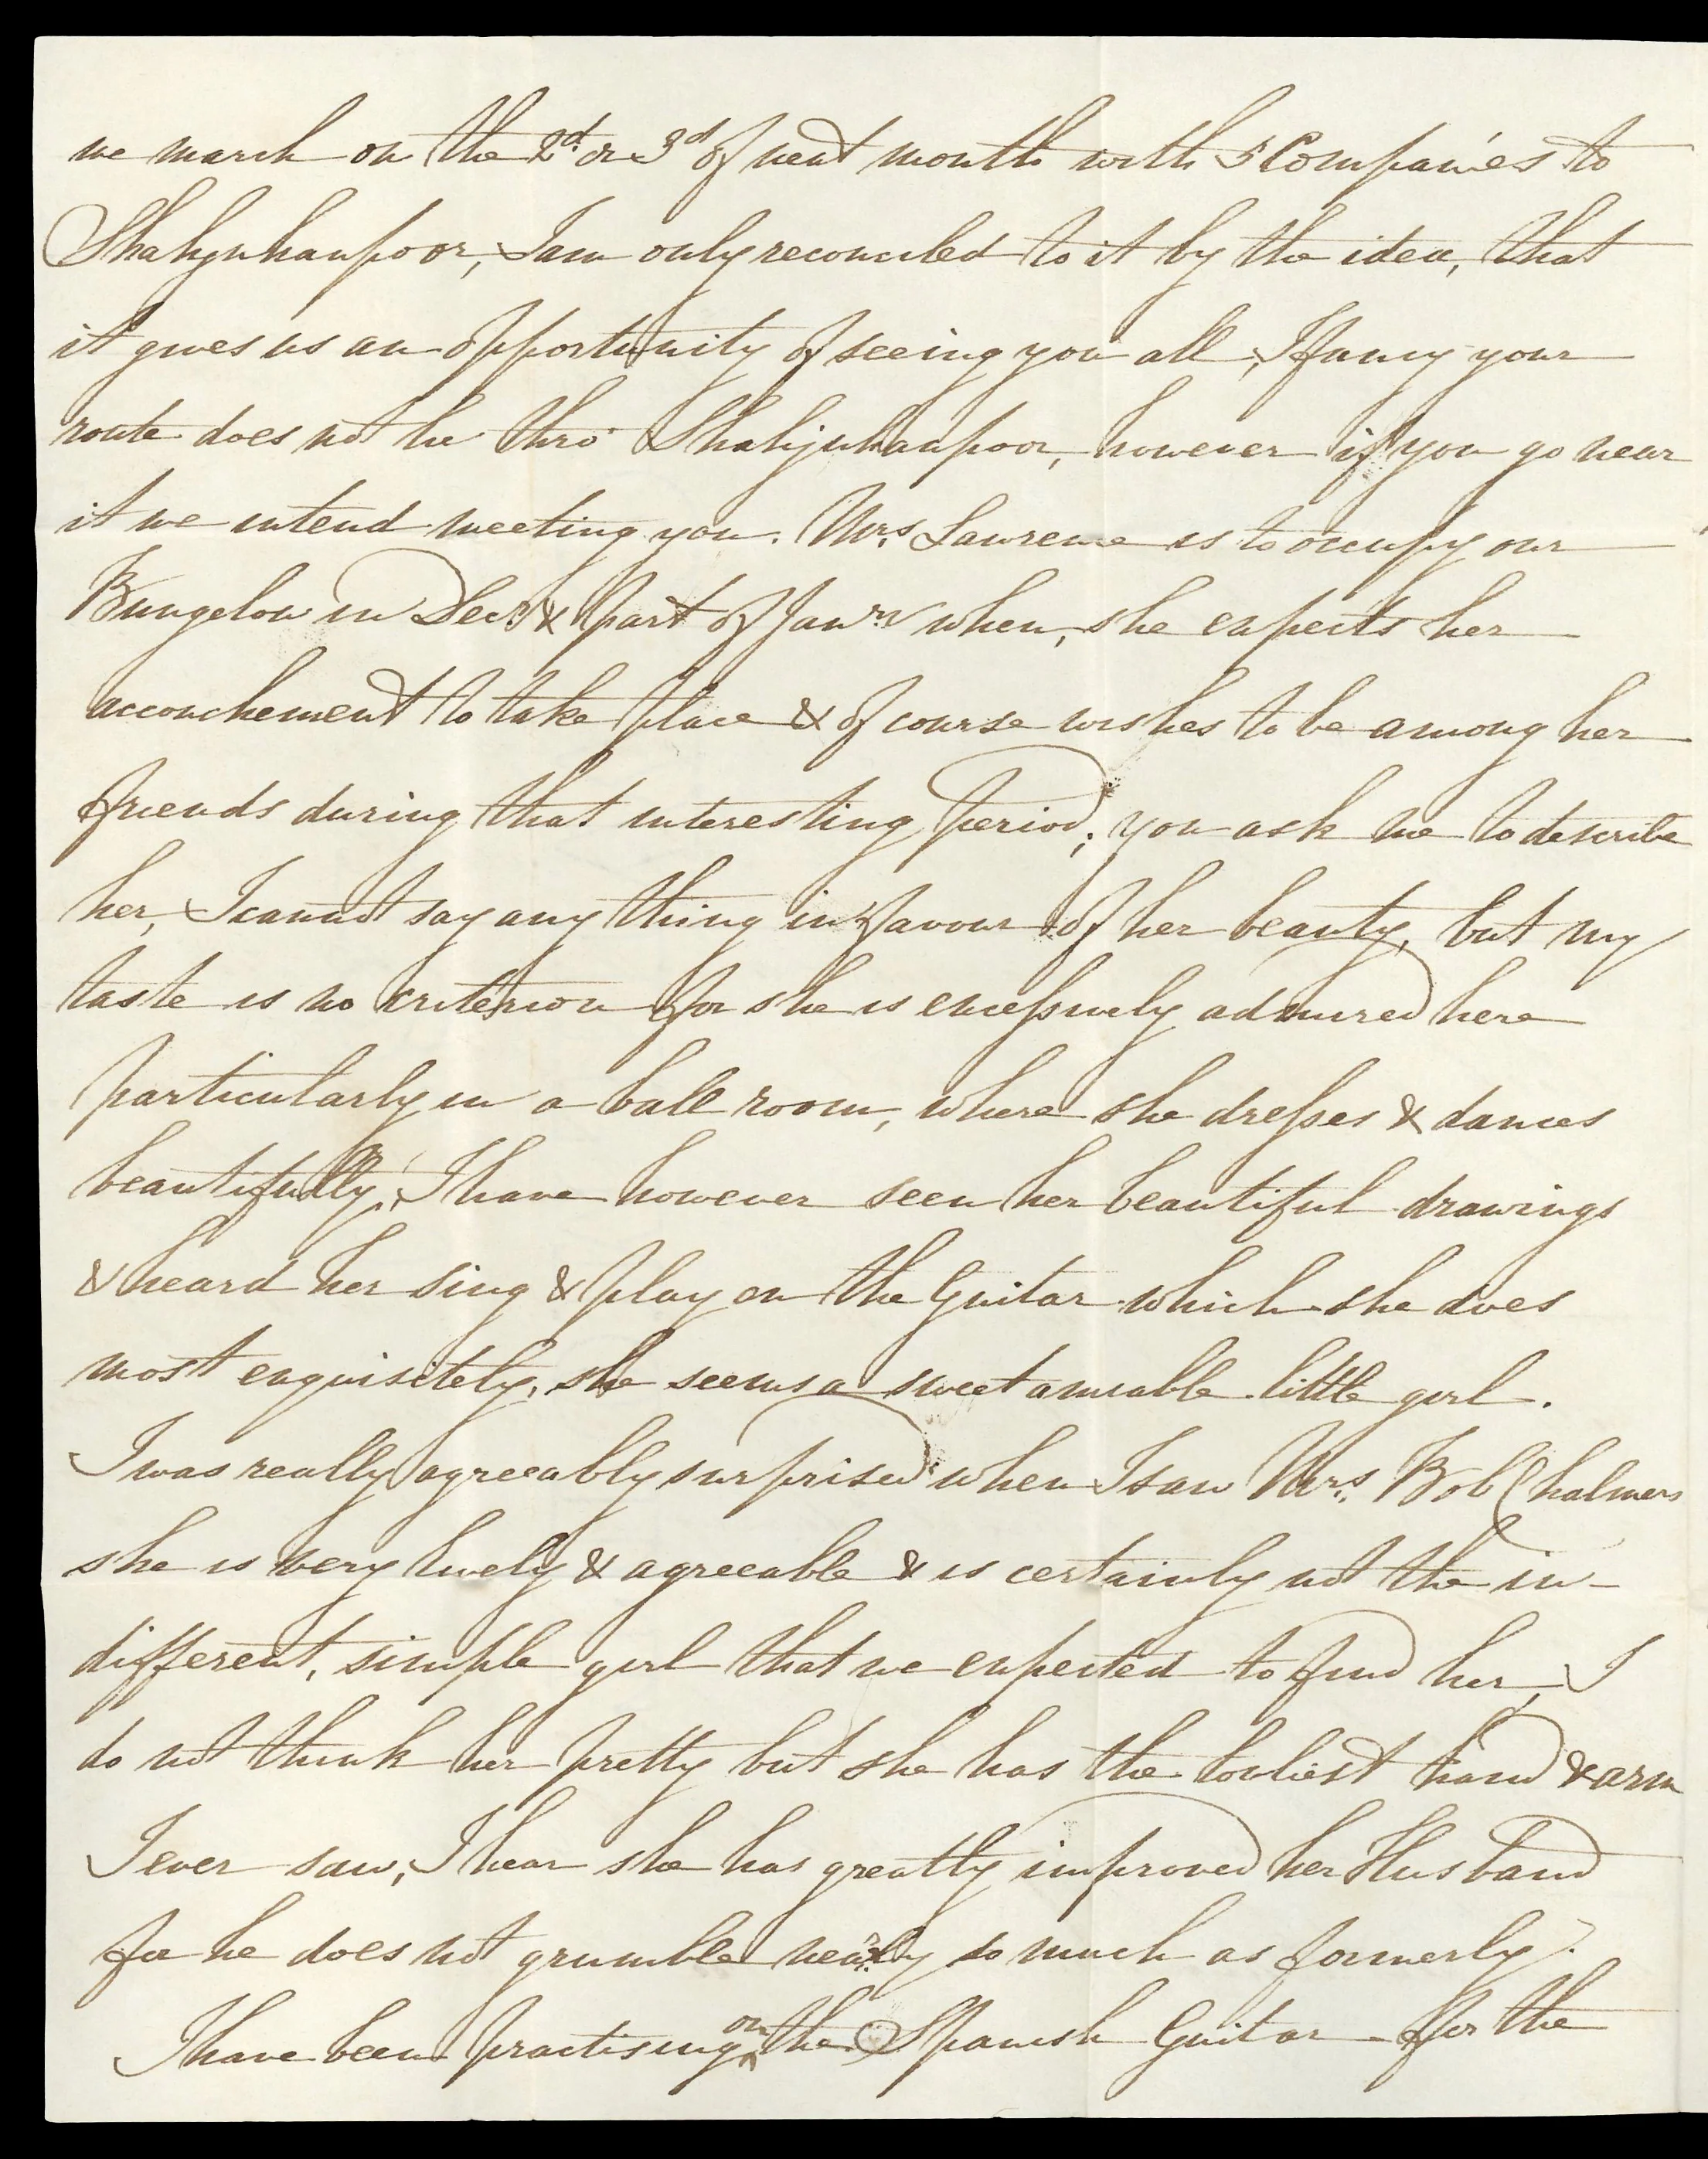 we march on the 2d. or 3d of next month with 5 Companies to
Shahjuhanpoor, I am only reconciled to it by the idea, that
it gives us an opportunity of seeing you all, I fancy your
route does not lie thro' Shahjuhanpoor, however if you go near
it we intend meeting you. Mrs. Lawrence is to occupy our
Bungelow in Decr. & part of Janry when, she expects her
accouchement to take place & of course wishes to be among her
friends during that interesting period; you ask me to describe
her, I cannot say any thing in favour of her beauty, but my
taste is no criterion for she is excessively admired here
particularly in a ball room, where she dresses & dances
beautifully, I have however seen her beautiful drawings
& heard her sing & play on the Guitar which she does
most exquisitely, she seems a sweet amiable little girl.
I was really agreeably surprised when I saw Mrs. Bob Chalmers
she is very lively & agreeable & is certainly not the in-
different, simple girl that we expected to find her, I
do not think her pretty but she has the lovliest hand & arm
I ever saw, I hear she has greatly improved her Husband
for he does not grumble nearly so much as formerly.
I have been practising on the Spanish Guitar for the